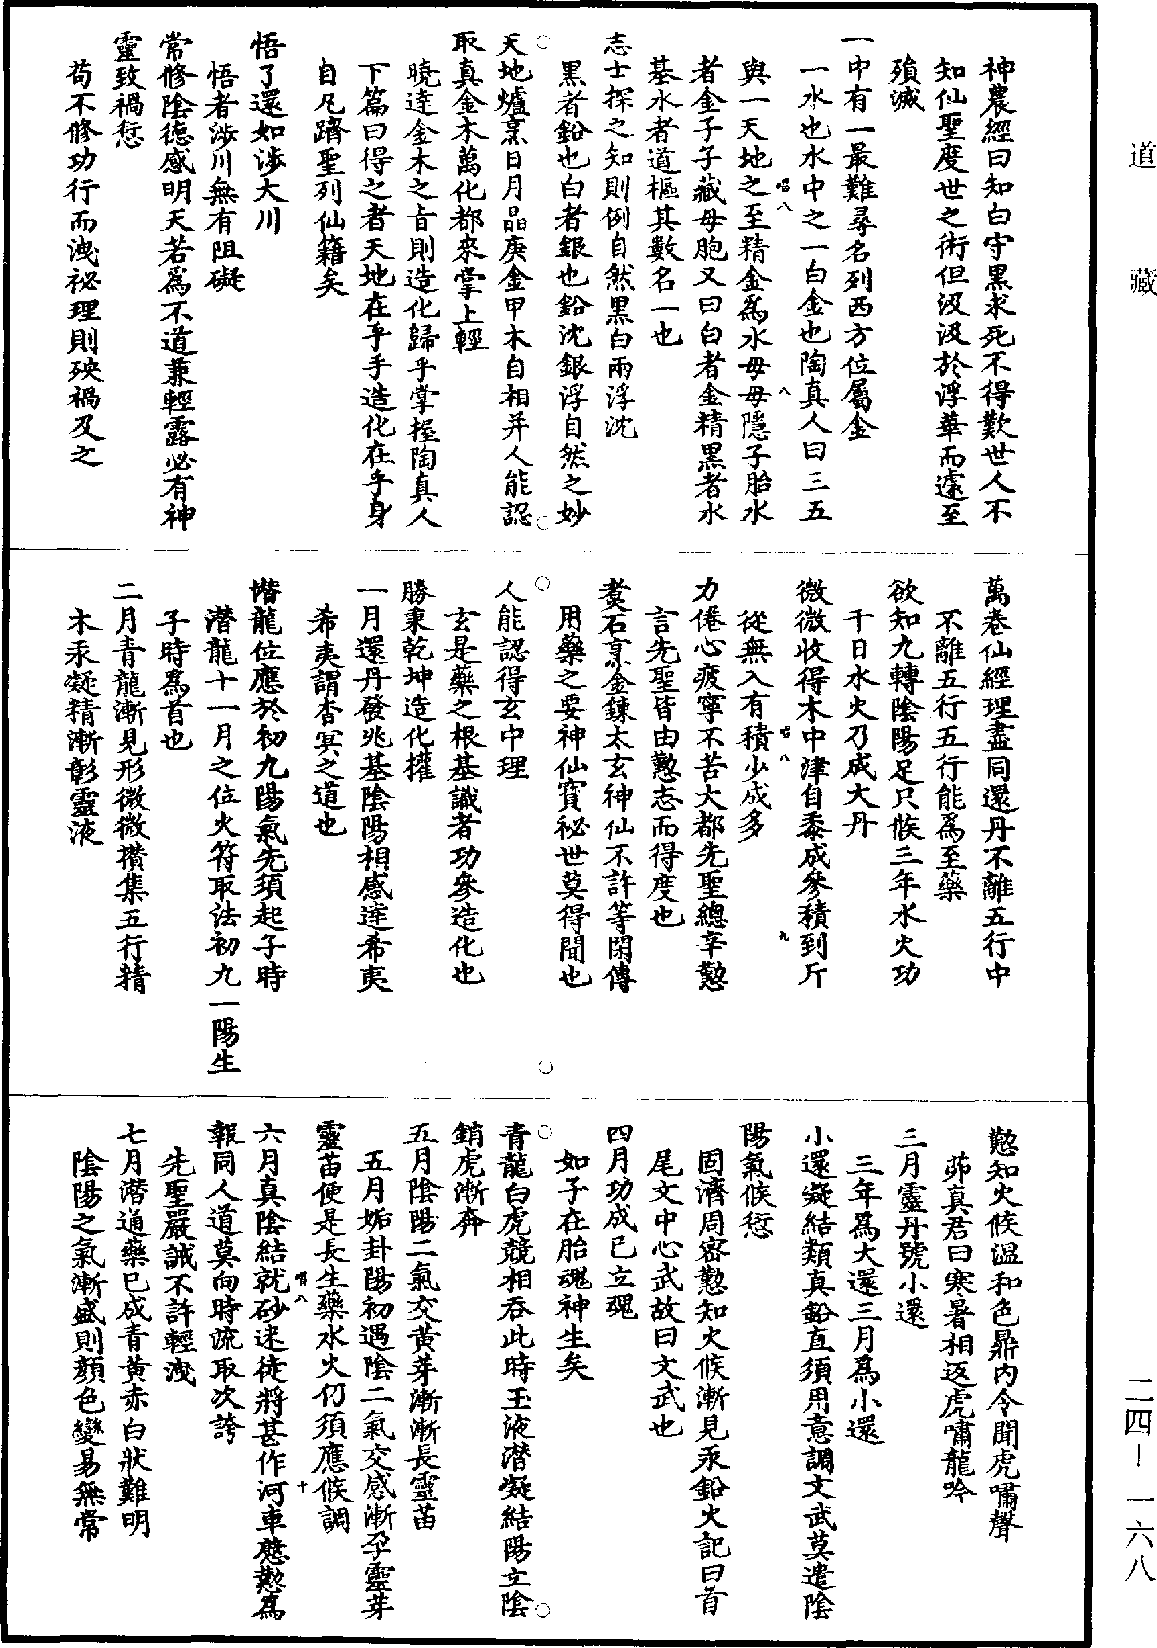 神農經曰知白守黑求死不得歎世人不
知仙聖度世之術但汲汲於浮華而遽至
殞滅
一中有一最難尋名列西方位屬金
一水也水中之一白金也陶真人曰三五
與一天地之至精金爲水母母隱子胎水
者金子子藏母胞又曰白者金精黑者水
基水者道樞其數名一也
志士探之知則例自然黑白兩浮沈
黑者鉛也白者銀也鉛沈銀浮自然之妙
天地爐烹日月晶庚金甲木自相并人能認
取真金木萬化都來掌上輕
曉達金木之旨則造化歸乎掌握陶真人
下篇曰得之者天地在乎手造化在乎身
自凡躋聖列仙籍矣
悟了還如涉大川
悟者涉川無有阻礙
常修陰德感明天若爲不道兼輕露必有神
靈致禍愆
苟不修功行而洩祕理則殃禍及之
萬卷仙經理盡同還丹不離五行中
不離五行五行能爲至藥
欲知九轉陰陽足只候三年水火功
千日水火乃成大丹
微微收得木中津自黍成參積到斤
從無入有積少成多
力倦心疲寧不苦大都先聖總辛懃
言先聖皆由懃志而得度也
煑石烹金鍊太玄神仙不許等閑傳
用藥之要神仙寶祕世莫得聞也
人能認得玄中理
玄是藥之根基識者功參造化也
勝秉乾坤造化權
一月還丹發兆基陰陽相感達希夷
希夷謂杳冥之道也
潛龍位應於初九陽氣先須起子時
潛龍十一月之位火符取法初九一陽生
子時爲首也
二月青龍漸見形微微攢集五行精
木汞凝精漸彰靈液
懃知火候溫和色鼎內令聞虎嘯聲
茆真君曰寒暑相返虎嘯龍吟
三月靈丹號小還
三年爲大還三月爲小還
小還凝結類真鉛直須用意調文武莫遣陰
陽氣候愆
固濟周密懃知火候漸見汞鉛火記曰首
尾文中心武故曰文武也
四月功成已立魂
如子在胎魂神生矣
青龍白虎競相吞此時玉液潛凝結陽立陰
銷虎漸奔
五月陰陽二氣交黃芽漸漸長靈苗
五月姤卦陽初遇陰二氣交感漸孕靈芽
靈苗便是長生藥水火仍須應候調
六月真陰結就砂迷徒將甚作河車慇懃爲
報同人道莫向時流取次誇
先聖嚴誡不許輕洩
七月潛通藥已成青黃赤白狀難明
陰陽之氣漸盛則顏色變易無常
道藏
二四—一六八